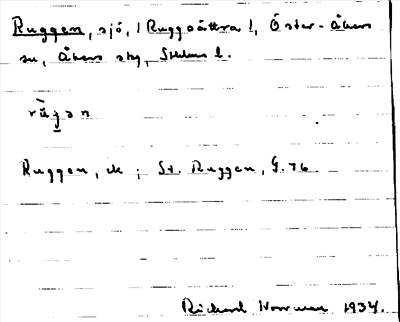 Ruggen, sjö, ! Ruggsättra !, Öster-Åkers
sn, Åkers skg, Sthlms l.
rúgən
Ruggen, ek ; St. Ruggen, G. 76.
Richard 1934.